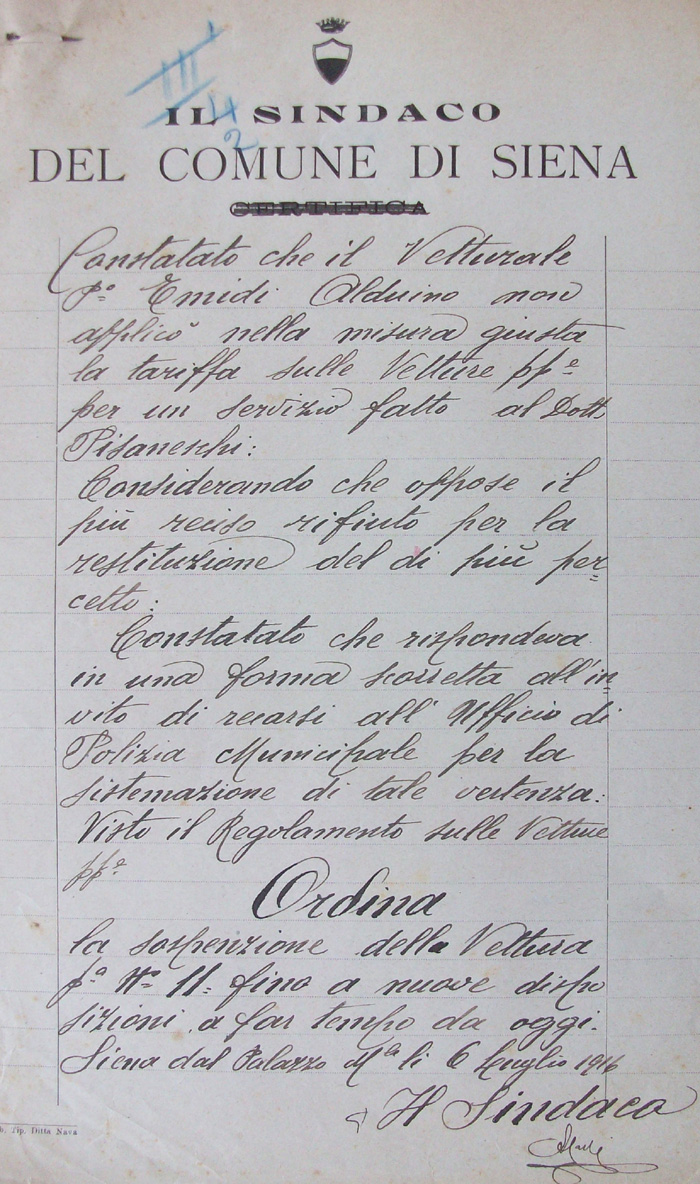 III
4
2
IL SINDACO
DEL COMUNE DI SIENA
CERTIFICA
Constatato che il Vetturale
p.º Emidi Alduino non
applicò nella misura giusta
la tariffa sulle Vetture pp.e
per un servizio fatto al Dott.
Pisaneschi:
Considerando che oppose il
più reciso rifiuto per la
restituzione del di più per=
cetto:
Constatato che rispondeva
in una forma scorretta all'in=
vito di recarsi all'Ufficio di
Polizia Municipale per la
sistemazione di tale vertenza:
Visto il Regolamento sulle Vetture
pp.e
Ordina
la sospenzione della Vettura
p.a Nº 11. fino a nuove dispo
sizioni a far tempo da oggi.
Siena dal Palazzo M.le li 6 Luglio 1916
Il Sindaco
b. Tip. Ditta Nava